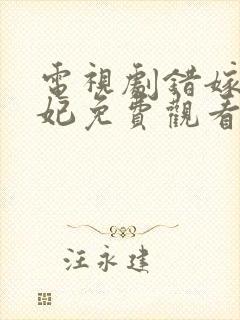 電視劇錯嫁
妃免費觀看
汪永建